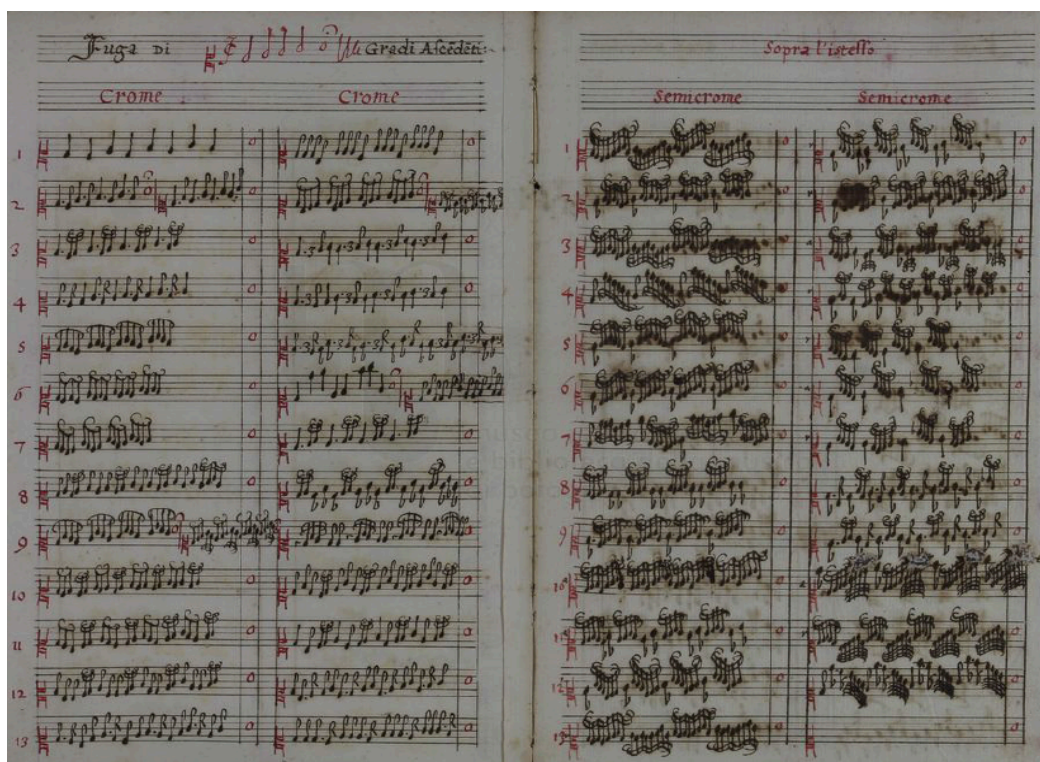 Fuga Di Gradi Ascēdēti:
Crome Crome
1
2
3
4
5
6
7
8
9
10
11
12
13
Sopra l'istesso
Semicrome Semicrome
1
2
3
4
5
6
7
8
9
10
11
12
13